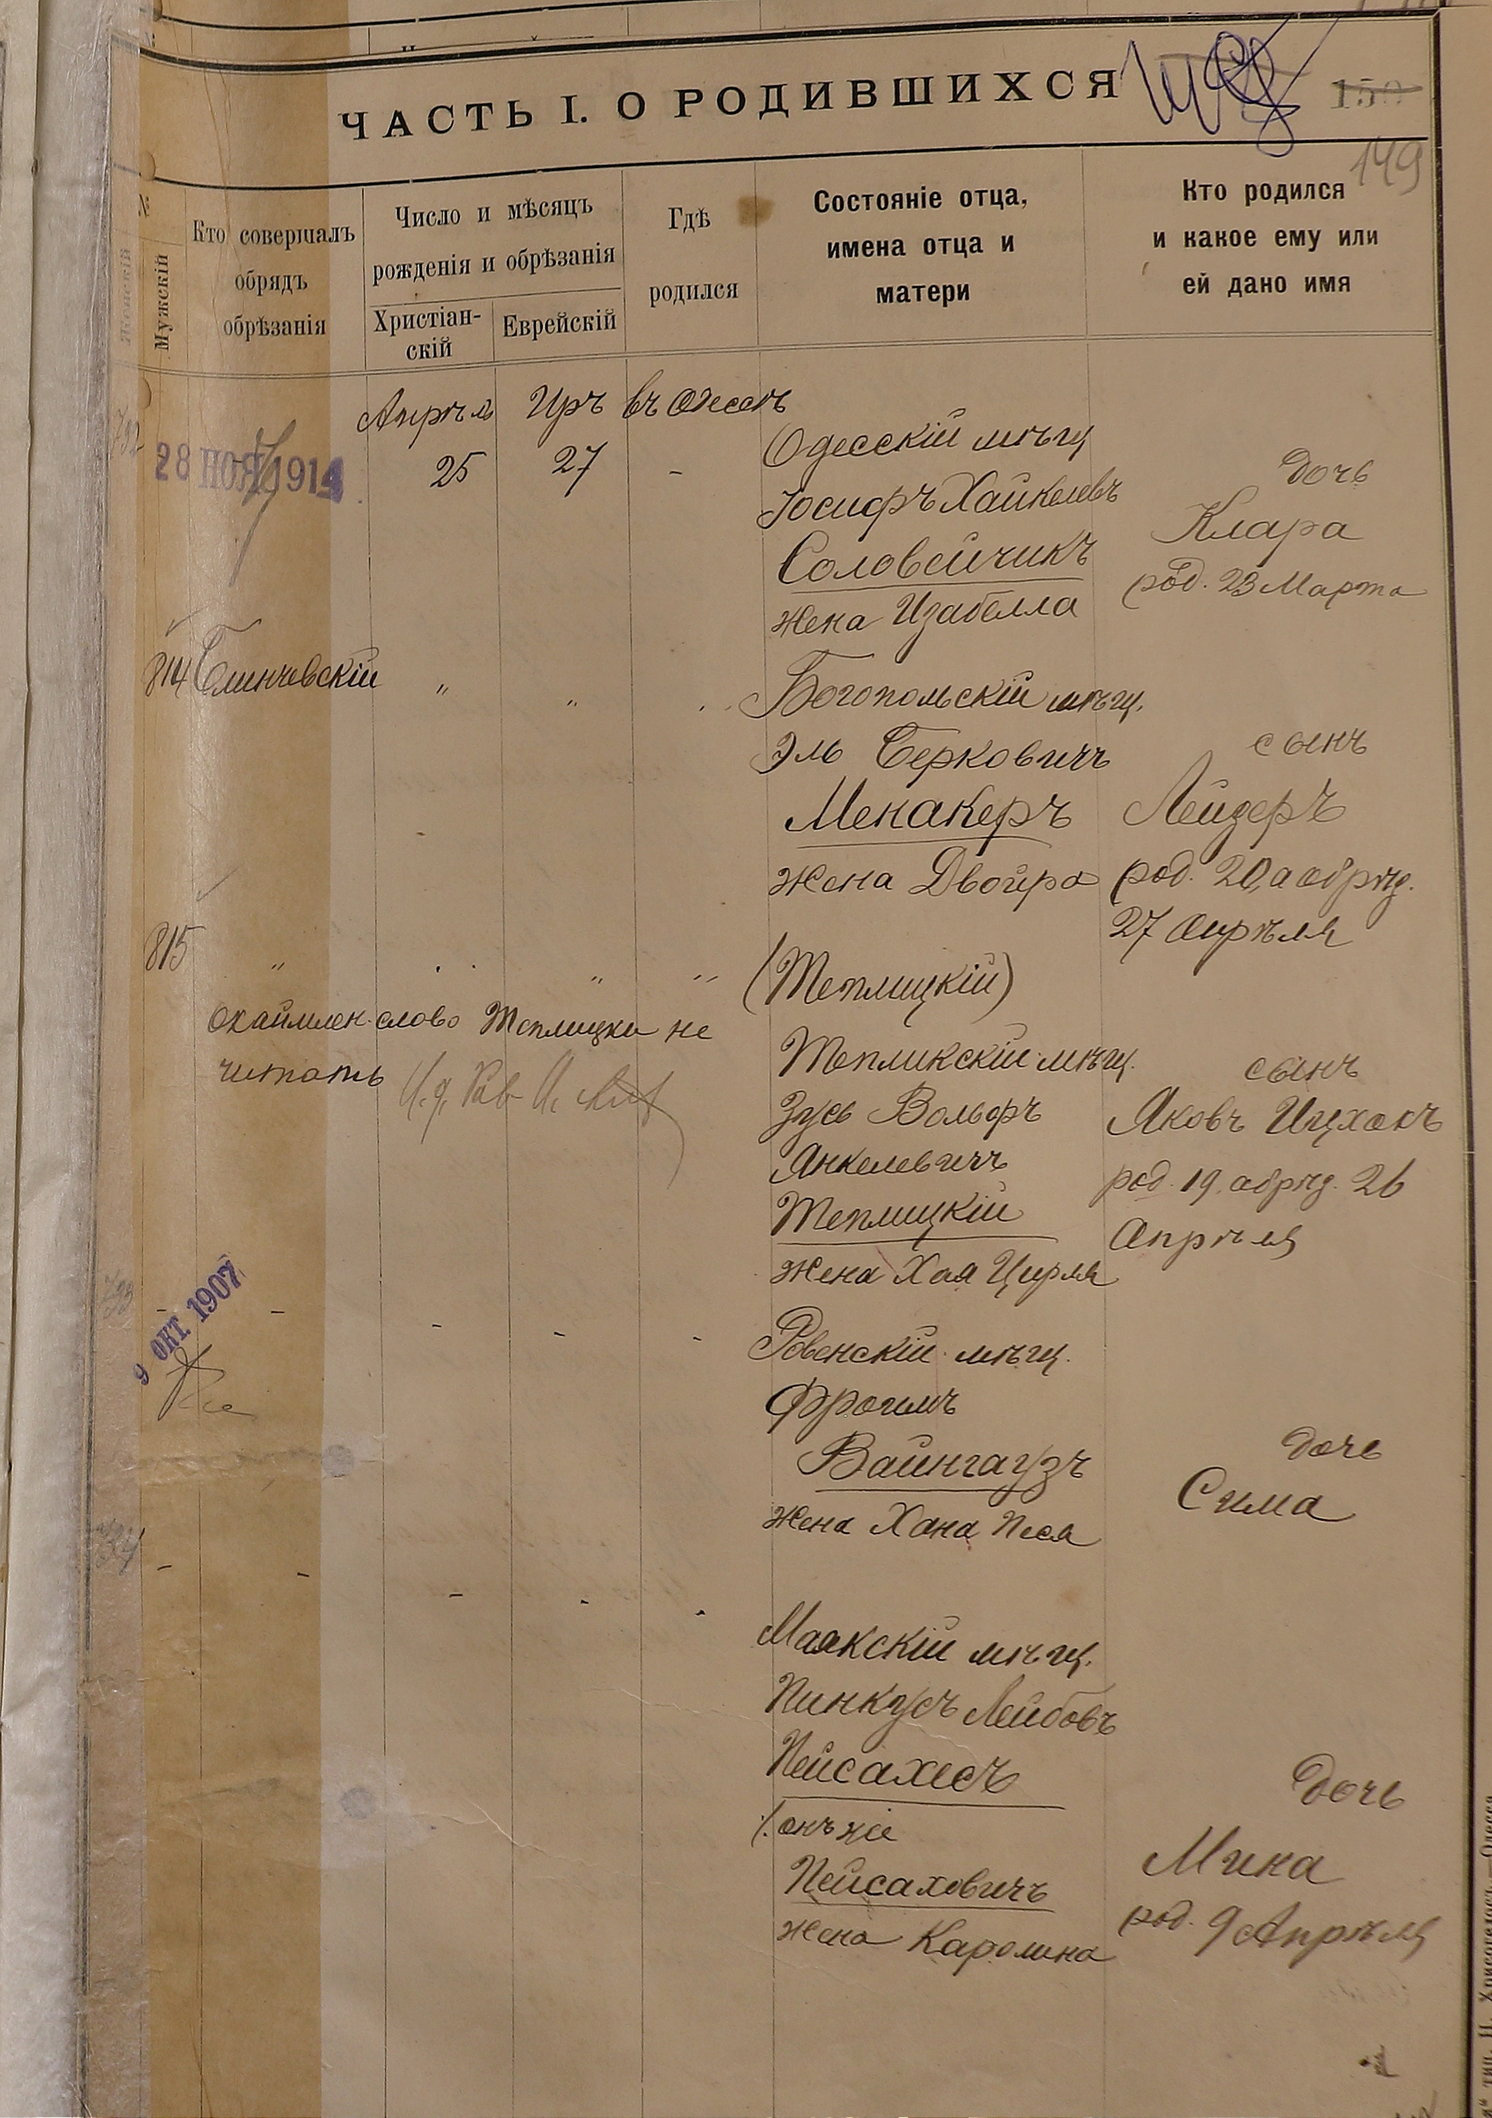 ЧАСТЬ I. О РОДИВШИХСЯ
150
149
№
Женскій
Мужскій
Кто совершалъ
обрядъ
обрѣзанія
Число и мѣсяцъ
рожденія и обрѣзанія
Христіан-
скій
Еврейскій
Гдѣ
родился
Состояніе отца,
имена отца и
матери
Кто родился
и какое ему или
ей дано имя
Апрѣль Иръ въ Одессѣ
25 27 -
28 НОЯ 1914
Одесскій мѣщ
Іосифъ Хайкелевъ
Соловейчикъ
жена Изабелла
дочь
Клара
род. 23 Марта
814 Блинчевскій " "
Богопольскій мѣщ.
Эль Берковичъ
Менакеръ
жена Двойра
сынъ
Лейзеръ
род. 20, а обрѣз.
27 Апрѣля
815 " " "
(Теплицкій)
окаймлен. слово Теплицки не
читать
Тепликскій мѣщ.
Зусь Вольфъ
Янкелевичъ
Теплицкій
жена Хая Цирля
сынъ
Яковъ Ицхокъ
род. 19, обрѣз. 26
Апрѣля
9 ОКТ. 1907
- - - - -
Ровенскій мѣщ.
Фроимъ
Вайнгаузъ
жена Хана Песя
дочь
Сима
- - - - -
Маякскій мѣщ.
Пинкусъ Лейбовъ
Пейсахесъ
онъ же
Пейсаховичъ
жена Каролина
дочь
Мина
род. 9 Апрѣля